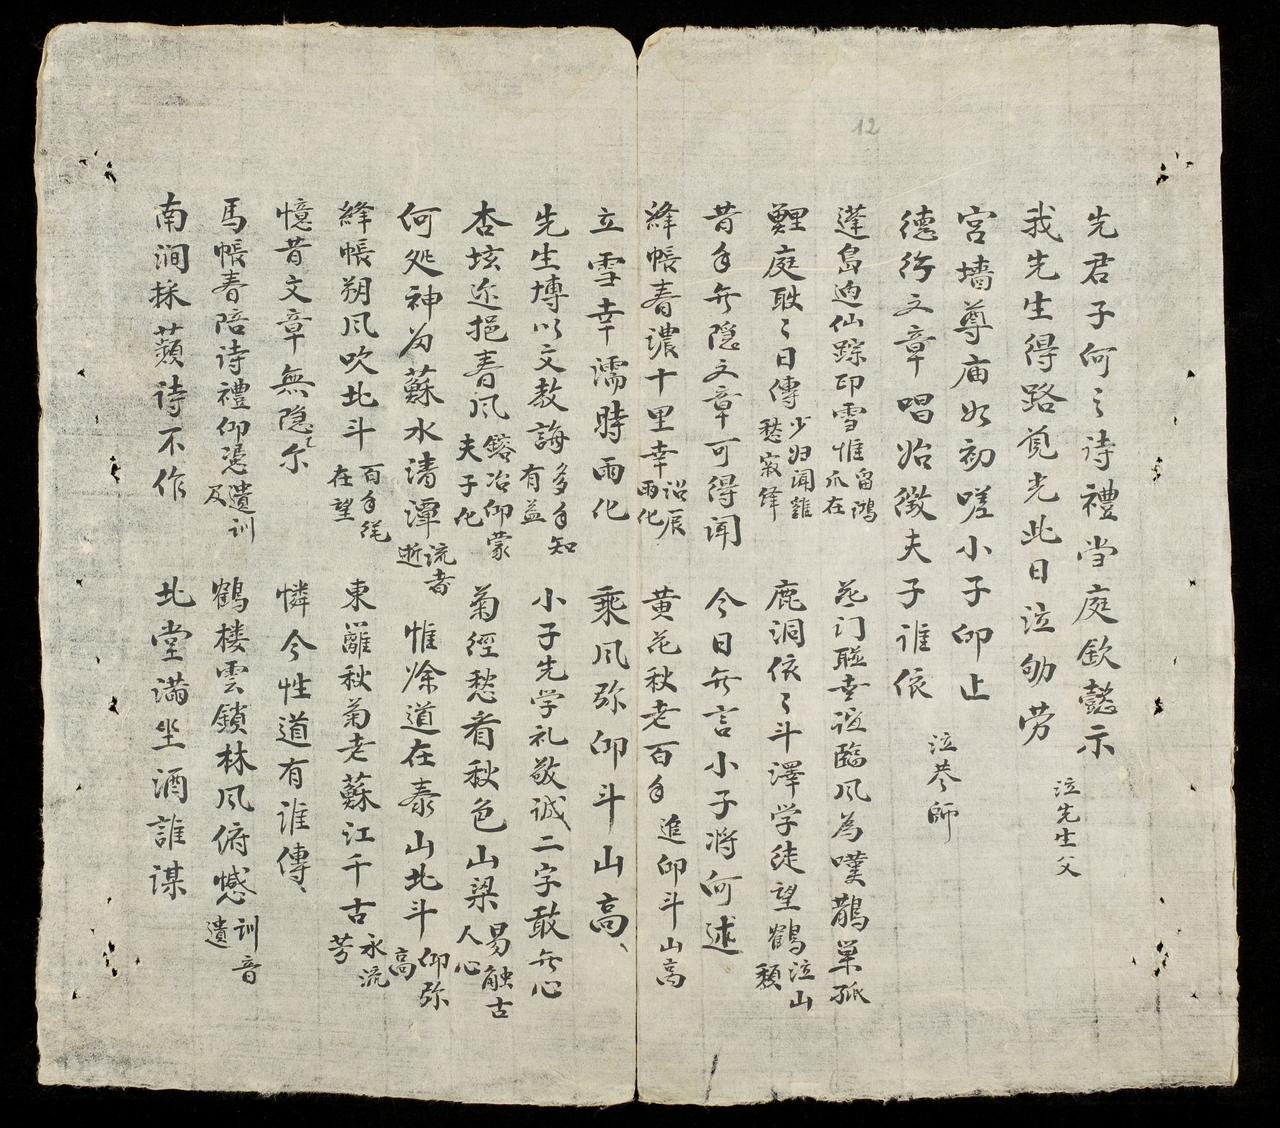 12
先君子何之诗禮当庭欽懿示 泣先生父
我先生得路覓光此日泣劬劳
宮墻尊庙如初嗟小子仰止
德行文章唱始徵夫子谁依 泣恭師
蓬島迫仙踪印雪惟留鴻爪在 門聪幸设臨风為嘆鵲巢孤
鯉庭耿〻日傳少归闻雞愁寂絳 鹿洞依〻斗澤学徒望鶴泣山頹
昔年无隐文章可得闻 今日无言小子將何述
絳帳春濃十里幸诏辰雨化 黄花秋老百年追仰斗山高
立雪幸濡時雨化 乘风弥仰斗山高
先生博以文教誨多年知有益 小子先学礼敬诚二字敢无心
杏坛迩挹春风鎔冶仰蒙夫子化 菊經愁看秋色山梁易触古人心
何处神为蘇水清潭流者逝 惟馀道在泰山北斗仰弥高
絳帳朔风吹北斗百年徒在望 東籬秋菊老蘇江千古永流芳
憶昔文章無隐尔 憐今性道有谁傳
馬帳春陪诗禮仰憑遺训及 鶴楼雲鎖林风俯憾训音遺
南澗採蘋詩不作 北堂满坐酒誰谋